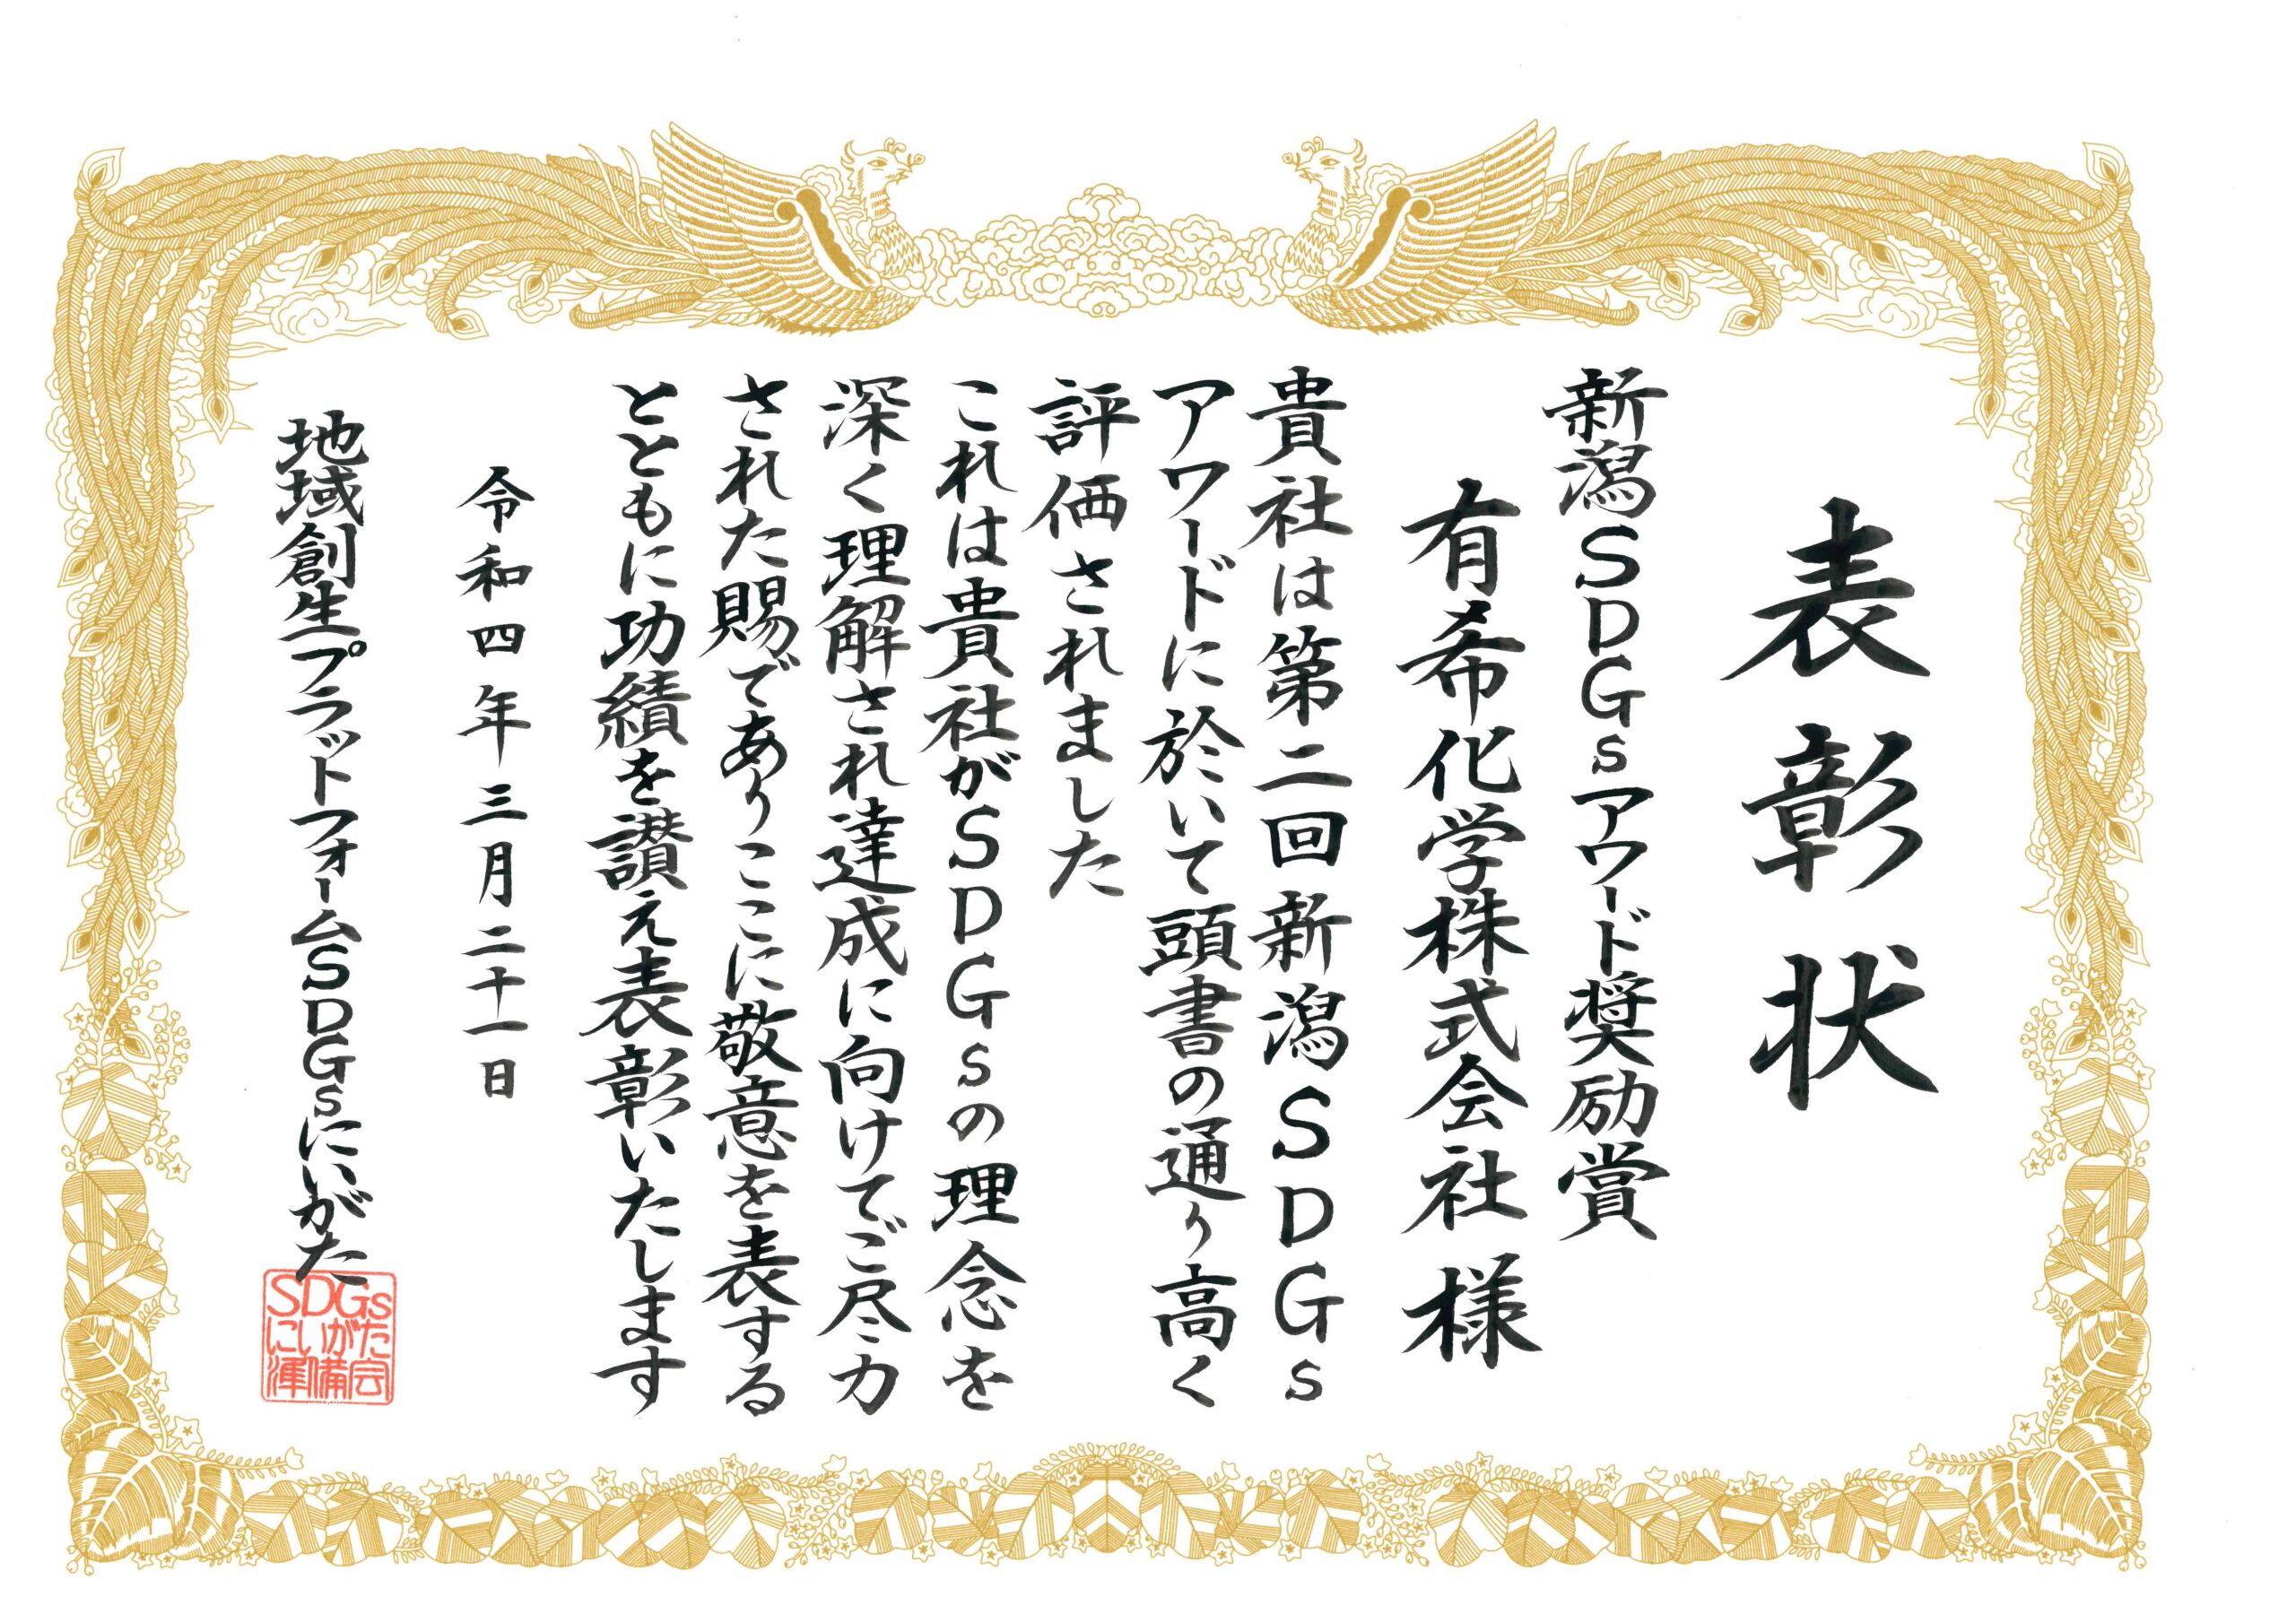 表彰状
新潟SDGsアワード奨励賞
有希化学株式会社様
貴社は第二回新潟SDGs
アワードに於いて頭書の通り高く
評価されました
これは貴社がSDGsの理念を
深く理解され達成に向けてご尽力
された賜でありここに敬意を表する
とともに功績を讃え表彰いたします
令和四年三月二十一日
地域創生プラットフォームSDGsにいがた
SDGs
にいがた
準備会